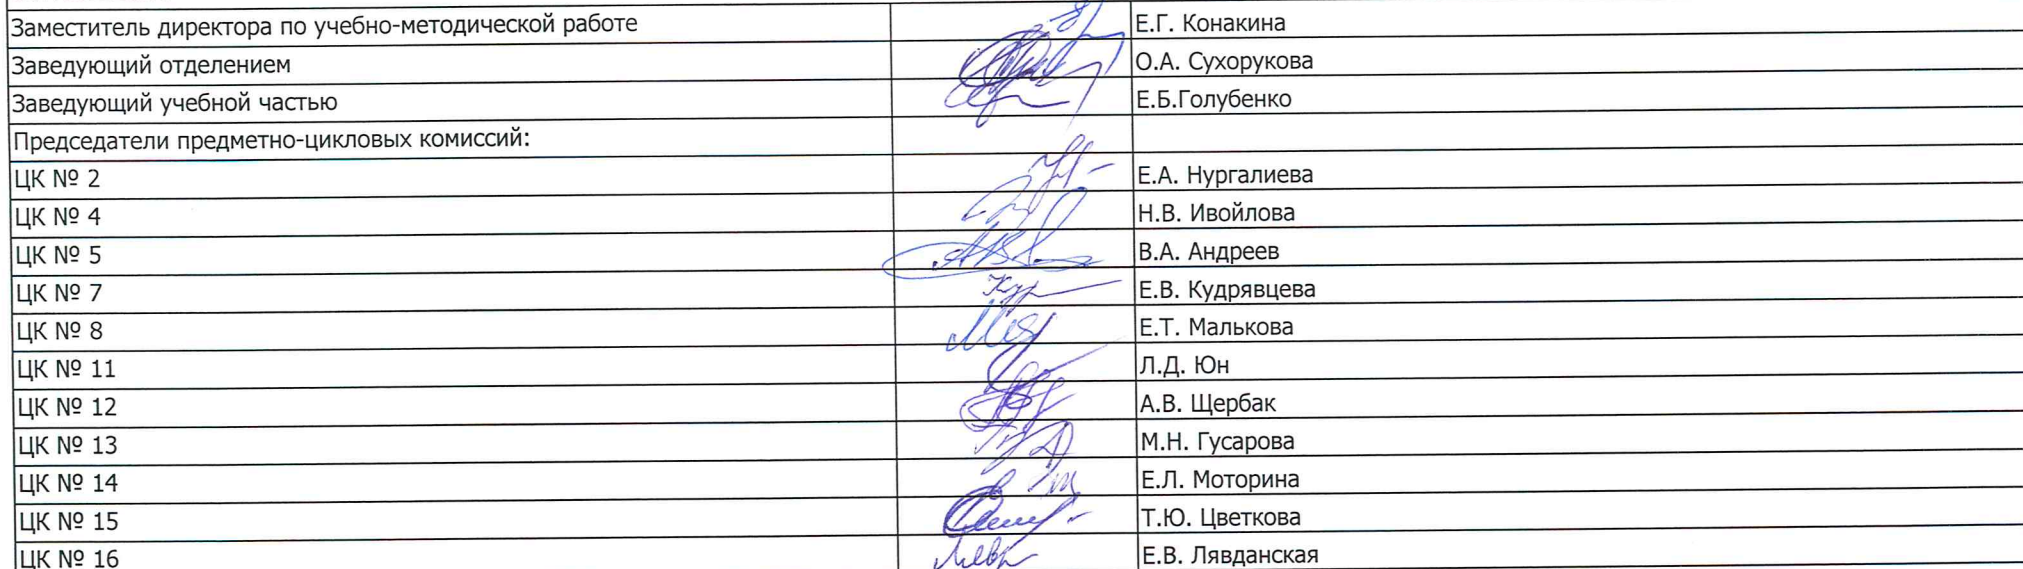 Заместитель директора по учебно-методической работе Е.Г. Конакина
Заведующий отделением О.А. Сухорукова
Заведующий учебной частью Е.Б.Голубенко
Председатели предметно-цикловых комиссий:
ЦК № 2 Е.А. Нургалиева
ЦК № 4 Н.В. Ивойлова
ЦК № 5 В.А. Андреев
ЦК № 7 Е.В. Кудрявцева
ЦК № 8 Е.Т. Малькова
ЦК № 11 Л.Д. Юн
ЦК № 12 А.В. Щербак
ЦК № 13 М.Н. Гусарова
ЦК № 14 Е.Л. Моторина
ЦК № 15 Т.Ю. Цветкова
ЦК № 16 Е.В. Лявданская